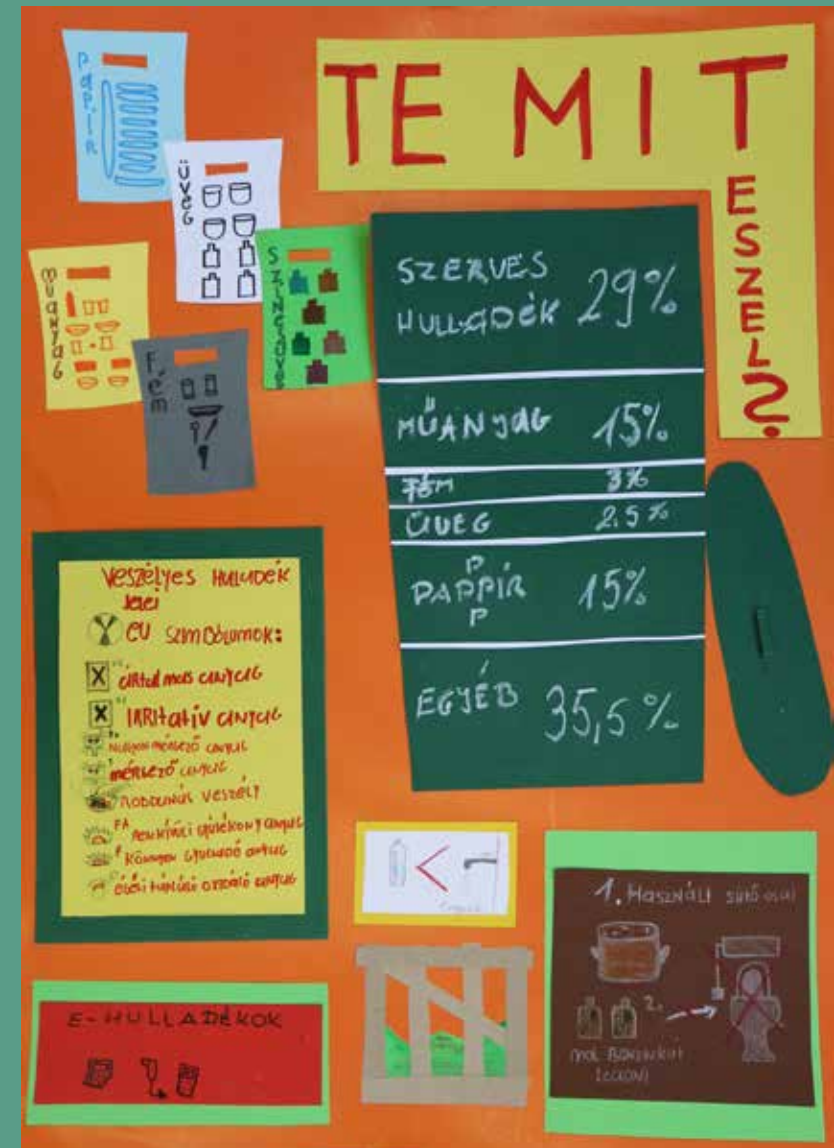 TE MIT
ESZEL?
Papír
üveg
Műanyag
Fém
SZÍNESÜVEG
SZERVES
HULLADÉK 29%
MŰANYAG 15%
FÉM 3%
ÜVEG 2.5%
PAPPÍR 15%
P
P
EGYÉB 35,5%
VESZÉLYES HULLADÉK
JELEI
EU SZIMBÓLUMOK:
ÁRTALMAS ANYAG
IRRITATÍV ANYAG
NAGYON MÉRGEZŐ ANYAG
MÉRGEZŐ ANYAG
ROBBANÁS VESZÉLY
RENKÍVÜLI GYÚLÉKONY ANYAG
KÖNNYEN GYULLADÓ ANYAG
ANYAG
E-HULLADÉKOK
1. HASZNÁLT SÜTŐ OLAJ
2.
MOL BENZINKÚT